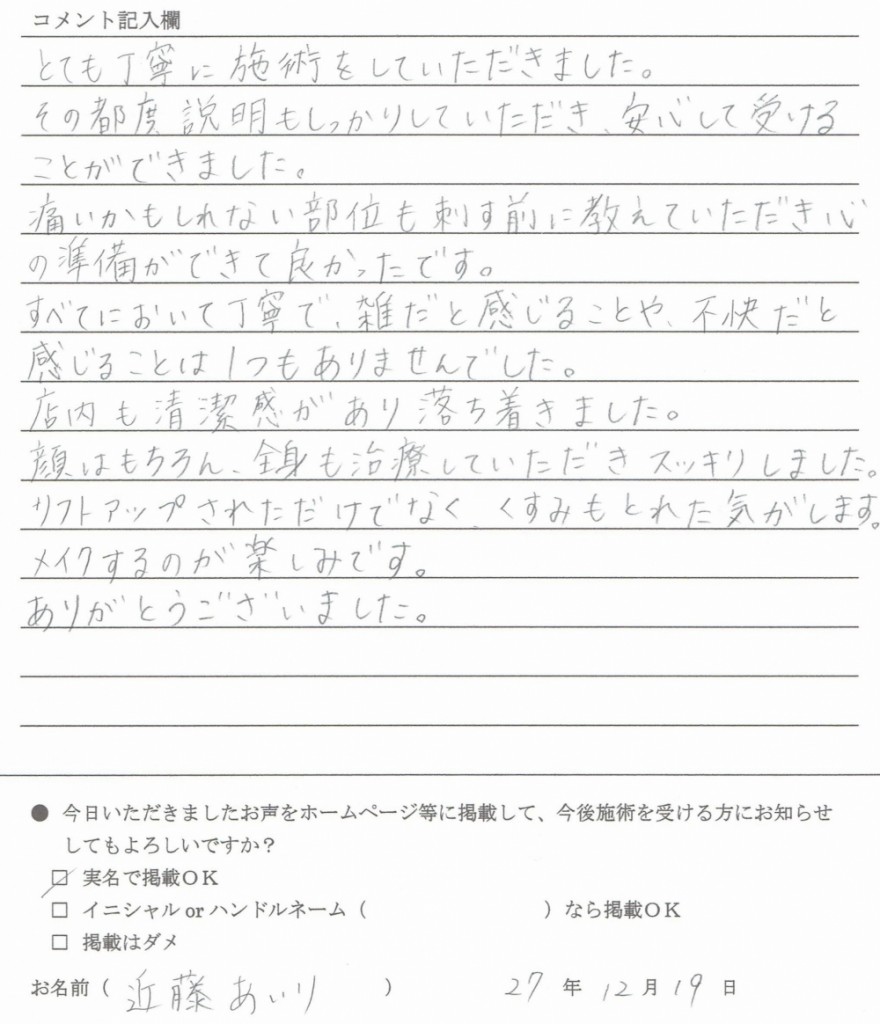 コメント記入欄
とても丁寧に施術をしていただきました。
その都度説明もしっかりしていただき、安心して受ける
ことができました。
痛いかもしれない部位も刺す前に教えていただき心
の準備ができて良かったです。
すべてにおいて丁寧で、雑だと感じることや、不快だと
感じることは1つもありませんでした。
店内も清潔感があり落ち着きました。
顔はもちろん、全身も治療していただきスッキリしました。
リフトアップされただけでなく、くすみもとれた気がします。
メイクするのが楽しみです。
ありがとうございました。
● 今日いただきましたお声をホームページ等に掲載して、今後施術を受ける方にお知らせ
してもよろしいですか？
☑ 実名で掲載OK
□ イニシャル or ハンドルネーム（ ）なら掲載OK
□ 掲載はダメ
お名前（ 近藤あいり ） 27 年 12 月 19 日